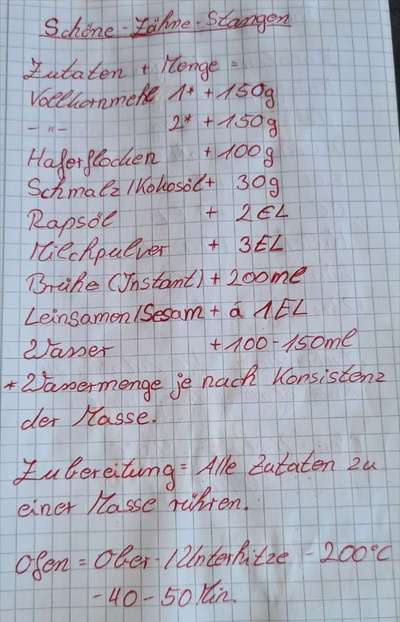 Schöne-Zähne-Stangen
Zutaten + Menge =
Vollkornmehl 1* + 150g
-"- 2* + 150g
Haferflocken + 100g
Schmalz/Kokosöl + 30g
Rapsöl + 2 EL
Milchpulver + 3 EL
Brühe (Instant) + 200ml
Leinsamen/Sesam + á 1 EL
Wasser + 100-150ml
* Wassermenge je nach Konsistenz
der Masse.
Zubereitung = Alle Zutaten zu
einer Masse rühren.
Ofen = Ober-/Unterhitze - 200°C
- 40 - 50 Min.